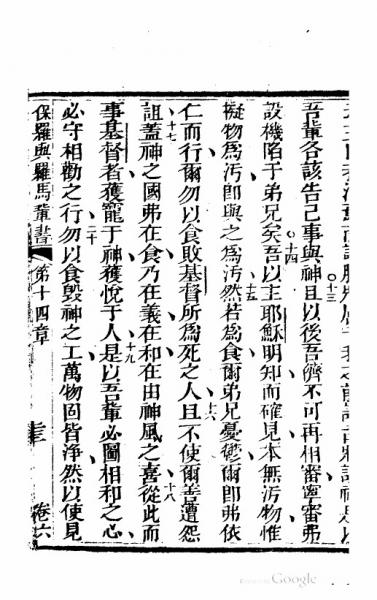 十三
吾輩各該告己事與神且以後吾儕不可再相審寧審弗
十四
設機陷于弟兄矣吾以主耶穌明知而確見本無污物惟
十五
擬物為污即與之為污然若為食爾弟兄憂鬱爾即弗依
十六
仁而行爾勿以食敗基督所為死之人且不使爾善遭怨
十七
十八
詛蓋神之國弗在食乃在義在和在由神風之喜從此而
十九
事基督者獲寵于神獲悅于人是以吾輩必圖相和之心
二十
必守相勸之行勿以食毀神之工萬物固皆淨然以使見
保羅與羅馬輩書 第十四章 卷六
Google